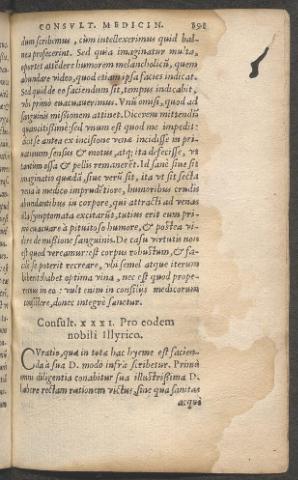 CONSVLT. MEDICIN. 891
dum scribimus, cùm intellexerimus quid bal-
nea profecerint. Sed quia imaginatur multa,
oportet attēdere humorem melancholicū, quem
abundare video, quod etiam ipsa facies indicat.
Sed quid de eo faciendum sit, tempus indicabit,
vbi primò euacuauerimus. Vnū omisi, quod ad
sanguinis missionem attinet. Dicerem mittendū
quancitissimè: sed vnum est quod me impedit:
ait se antea ex incisione venæ incidisse in pri-
uationem sensus & motus, atq; ita defecisse, vt
tantùm ossa & pellis remaneret. Id sanè siue sit
imaginatio quædā, siue verū sit, ita vt sit secta
vena à medico imprudētiore, humoribus crudis
abundantibus in corpore, qui attracti ad venas
illa symptomata excitarūt, tutius erit eum pri-
mò euacuare à pituitoso humore, & postea vi-
dere de missione sanguinis. De casu virtutis non
est quod vereamur: est corpus robustum, & fa-
cilè se poterit recreare, vbi semel atque iterum
biberit habet optima vina, nec est quod prope-
remus in eo: vult enim in consiliis medicorum
consistere, donec integrè sanetur.
Consult. XXXI. Pro eodem
nobili Illyrico.
CVratio, quæ in tota hac hyeme est facien-
da à sua D. modo infrà scribetur. Primò
omni diligentia conabitur sua illustrissima D.
habere rectam rationem victus, sine qua sanitas
æquè